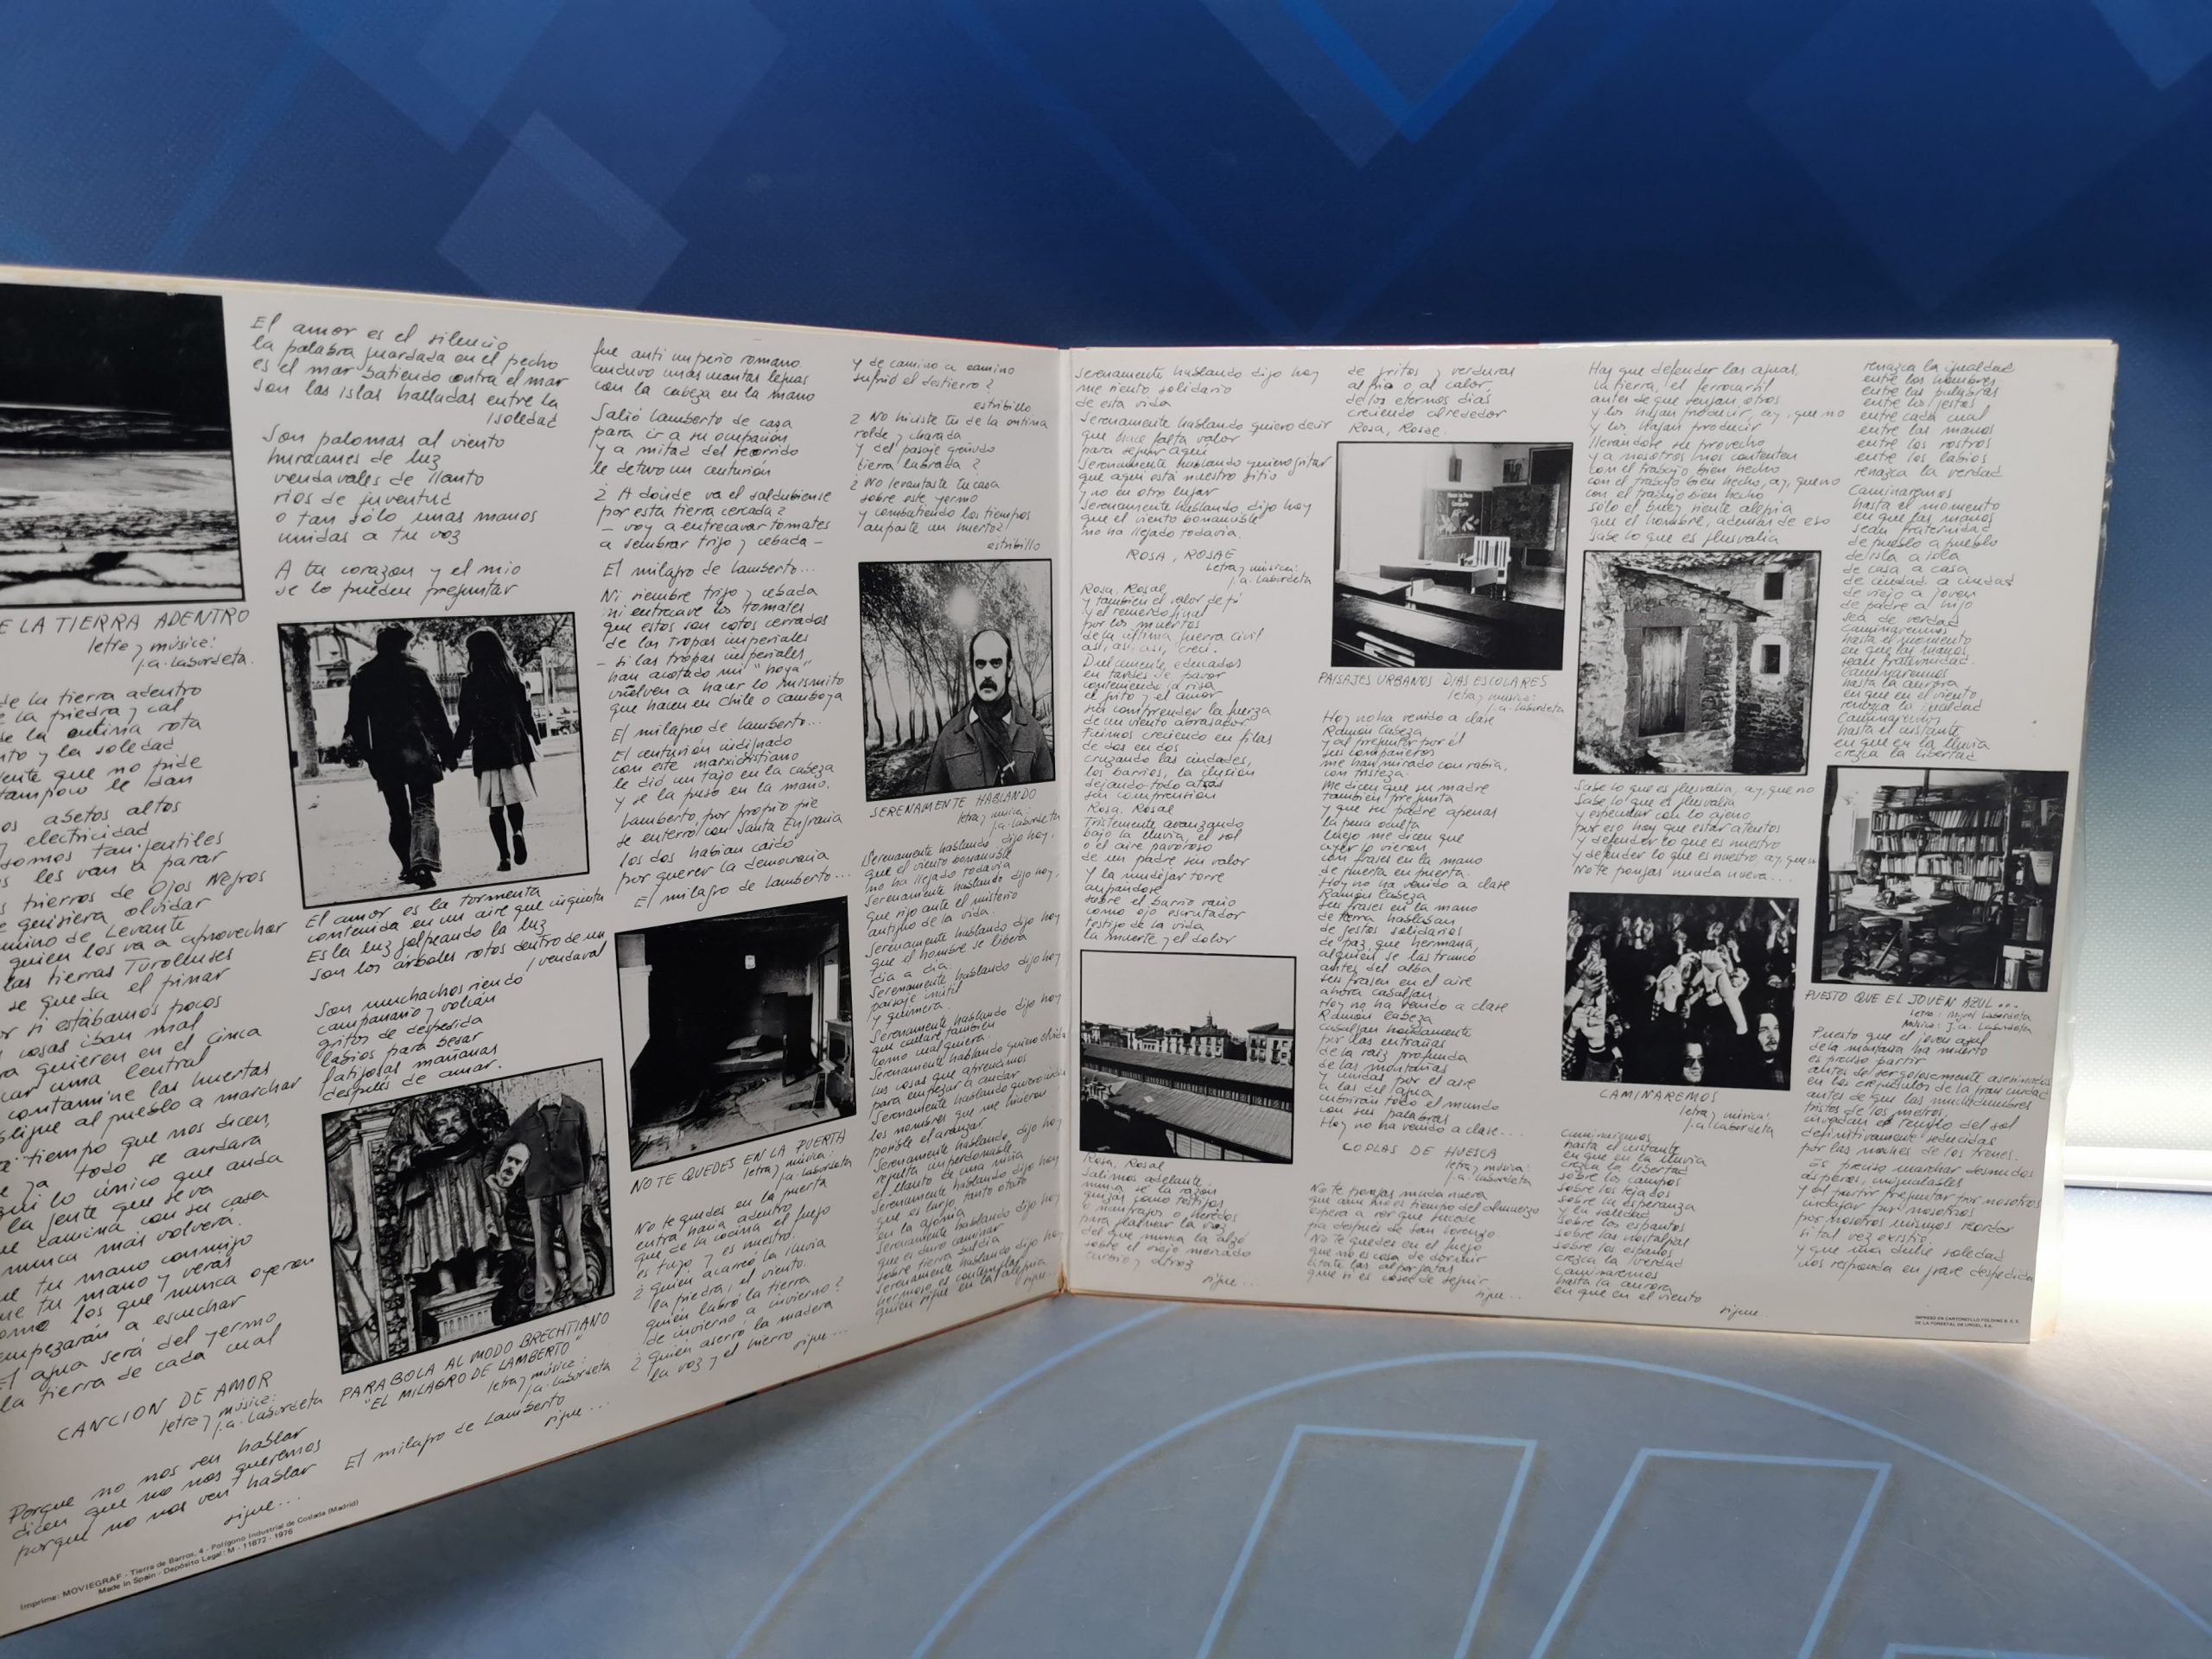 E LA TIERRA ADENTRO
letra y música:
J.A. Labordeta.
de la tierra adentro
e la piedra y cal
de la ontina rota
nto y la soledad
ente que no pide
tampoco le dan
os abetos altos
y electricidad
somos tan gentiles
s les van a parar
s hierros de Ojos Negros
e quisiera olvidar
amino de Levante
quien los va a aprovechar
las tierras Turolenses
se queda el pinar
or si estábamos pocos
cosas iban mal
ra quieren en el Cinca
car una Central
contamine las huertas
bligue al pueblo a marchar
a tiempo que nos dicen,
e ya todo se andará
quí lo único que anda
la gente que se va
ue camina con su casa
nunca más volverá.
ue tu mano conmigo
me tu mano y verás
omo los que nunca oyeron
empezarán a escuchar
El agua será del yermo
la tierra de cada cual
CANCION DE AMOR
letra y música:
J.A. Labordeta
Porque no nos ven hablar
dicen que no nos queremos
porque no nos ven hablar
sigue...
Imprime: MOVIEGRAF - Tierra de Barros, 4 - Polígono Industrial de Coslada (Madrid)
Made in Spain - Depósito Legal: M - 11872 - 1976
El amor es el silencio
la palabra guardada en el pecho
es el mar batiendo contra el mar
son las islas halladas entre la
/soledad
Son palomas al viento
huracanes de luz
vendavales de llanto
rios de juventud
o tan sólo unas manos
unidas a tu voz
A tu corazon y el mio
se lo pueden preguntar
El amor es la tormenta
contenida en un aire que inquieta
Es la luz golpeando la luz
son los árboles rotos dentro de un
/vendaval
Son muchachos riendo
campanario y volián
gritos de despedida
labios para besar
fatigosas mañanas
después de amar.
PARABOLA AL MODO BRECHTIANO
"EL MILAGRO DE LAMBERTO"
letra y música:
J.A. Labordeta
El milagro de Lamberto
sigue...
fue anti imperio romano
anduvo unas cuantas leguas
con la cabeza en la mano
Salió Lamberto de casa
para ir a su ocupación
y a mitad del recorrido
le detuvo un centurión
¿A dónde va el saldubiense
por esta tierra cercada?
- voy a entrecavar tomates
a sembrar trigo y cebada -
El milagro de Lamberto...
Ni siembre trigo y cebada
ni entrecave los tomates
que estos son cotos cerrados
de las tropas imperiales
- si las tropas imperiales
han acotado mi "hoya"
vuelven a hacer lo mismito
que hacen en Chile o Camboya
El milagro de Lamberto...
El centurión indignado
con este marxicristiano
le dió un tajo en la cabeza
y se la puso en la mano.
Lamberto por propio pie
se enterró con Santa Engracia
los dos habian caido
por querer la democracia
El milagro de Lamberto...
NO TE QUEDES EN LA PUERTA
letra y música:
J.A. Labordeta
No te quedes en la puerta
entra hacia adentro
que de la cocina el fuego
es tuyo y es nuestro.
¿Quién acarreó la lluvia
la piedra, el viento.
quién labró la tierra
de invierno a invierno?
¿Quién aserró la madera
la voz y el hierro
sigue...
y de camino a camino
sufrió el destierro?
estribillo
¿No hiciste tu de la ontina
rolde y charada
y del pasaje greñudo
tierra labrada?
¿No levantaste tu casa
sobre este yermo
y combatiendo los tiempos
aupaste un huerto?
estribillo
SERENAMENTE HABLANDO
letra y música:
J.A. Labordeta
Serenamente hablando dijo hoy,
que el viento bonancible
no ha llegado todavía
Serenamente hablando dijo hoy,
que rijo ante el misterio
antiguo de la vida.
Serenamente hablando dijo hoy
que el hombre se libera
dia a dia
Serenamente hablando dijo hoy
paisaje inútil
y quimera
Serenamente hablando dijo hoy
que cantaré también
como cualquiera.
Serenamente hablando quiero olvidar
las cosas que aprendimos
para empezar a andar
Serenamente hablando quiero
los hombres que me hicieron
posible el avanzar
Serenamente hablando dijo hoy
resulta imperdonable
el llanto de una niña
Serenamente hablando dijo hoy
que es largo, tanto otoño
en la agonia
Serenamente hablando dijo hoy
que es duro caminar
sobre tierra baldía
Serenamente hablando dijo hoy
hermoso es contemplar
quien sigue en la alegria
sigue...
Serenamente hablando dijo hoy
me siento solidario
de esta vida
Serenamente hablando quiero decir
que hace falta valor
para seguir aqui
Serenamente hablando quiero gritar
que aqui está nuestro sitio
y no en otro lugar
Serenamente hablando, dijo hoy
que el viento bonancible
no ha llegado todavia.
ROSA, ROSAE
Letra y música:
J.A. Labordeta
Rosa, Rosae
y también el valor de pi
y el remedio final
por los muertos
de la última guerra civil
así, así, así, crecí.
Dulcemente, educados
en tardes de pavor
conteniendo la risa
el grito y el amor
sin comprender la fuerza
de un viento abrasador
Fuimos creciendo en filas
de dos en dos
cruzando las ciudades,
los barrios, la ilusion
dejando todo atrás
sin comprension
Rosa, Rosae
Tristemente avanzando
bajo la lluvia, el sol
o el aire pavoroso
de un padre sin valor
Y la mudéjar torre
aupándose
sobre el barrio vacio
como ojo escrutador
testigo de la vida
la muerte y el dolor
Rosa, Rosae
Salimos adelante
nunca se la razón
quizás como testigos
o naufragos o heridos
para clamar la voz
del que nunca la alzó
sobre el viejo mercado
sucio y atroz
sigue...
de gritos y verduras
al frio o al calor,
de los eternos dias
creciendo alrededor
Rosa, Rosae.
PAISAJES URBANOS DIAS ESCOLARES
letra y música:
J.A. Labordeta
Hoy no ha venido a clase
Ramón Cabeza
y al preguntar por él
sus compañeros
me han mirado con rabia,
con tristeza.
Me dicen que su madre
también pregunta
y que su padre apenas
la pena oculta
luego me dicen que
ayer lo vieron
con frases en la mano
de puerta en puerta.
Hoy no ha venido a clase
Ramón Cabeza
sus frases en la mano
de tierra hablaban
de gestos solidarios
de paz que hermana,
alguien se las truncó
antes del alba
sus frases en el aire
ahora cabalgan.
Hoy no ha venido a clase
Ramón Cabeza
Cabalgan hondamente
por las entrañas
de la raiz profunda
de las montañas
y unidas por el aire
a las del agua
cubrirán todo el mundo
con sus palabras
Hoy no ha venido a clase...
COPLAS DE HUESCA
letra y música:
J.A. Labordeta
No te pongas nunca nuera
que aún no es tiempo del almuerzo
espera a ver que sucede
pa después de San Lorenzo.
No te quedes en el fuego
que no es cosa de dormir
átate las alpargatas
que si es cosa de seguir.
sigue...
Hay que defender las aguas,
la tierra, el ferrocarril
antes de que vengan otros
y los hagan producir, ay, que no
y los hagan producir
llevándose su provecho
y a nosotros nos contenten
con el trabajo bien hecho
con el trabajo bien hecho, ay, que no
con el trabajo bien hecho
sólo el buey siente alegría
que el hombre, además de eso
sabe lo que es plusvalía
Sabe lo que es plusvalía, ay, que no
Sabe lo que es plusvalía
y especular con lo ajeno
por eso hay que estar atentos
y defender lo que es nuestro
y defender lo que es nuestro ay, que no
No te pongas nunca nuera...
CAMINAREMOS
letra y música:
J.A. Labordeta
Caminaremos
hasta el instante
en que en la lluvia
crezca la libertad
sobre los campos
sobre los tejados
sobre la esperanza
y la soledad
sobre los espantos
sobre las nostalgias
sobre los espacios
crezca la verdad
Caminaremos
hasta la aurora
en que en el viento
sigue...
renazca la igualdad
entre los hombres
entre las palabras
entre los gestos
entre cada cual
entre las manos
entre los rostros
entre los labios
renazca la verdad
Caminaremos
hasta el momento
en que las manos
sean fraternidad
de pueblo a pueblo
de isla a isla
de casa a casa
de ciudad a ciudad
de viejo a joven
de padre a hijo
sea de verdad
Caminaremos
hasta el momento
en que las manos,
sean fraternidad.
Caminaremos
hasta la aurora
en que en el viento
renazca la igualdad
Caminaremos
hasta el instante
en que en la lluvia
crezca la libertad
PUESTO QUE EL JOVEN AZUL...
Letra: Miguel Labordeta
Música: J.A. Labordeta
Puesto que el joven azul
de la montaña ha muerto
es preciso partir
antes de ser golosamente asesinados
en los crepúsculos de la gran ciudad
antes de que las muchedumbres
tristes de los metros,
invadan el templo del sol
definitivamente seducidas
por las noches de los trenes.
Es preciso marchar desnudos
ásperos, inigualables
y al partir preguntar por nosotros
indagar por nosotros
por nosotros mismos recordar
si tal vez existió
y que una dulce soledad
nos responda en grave despedida
IMPRESO EN CARTONCILLO FOLDING B.S.E.
DE LA FORESTAL DE URGEL, S.A.